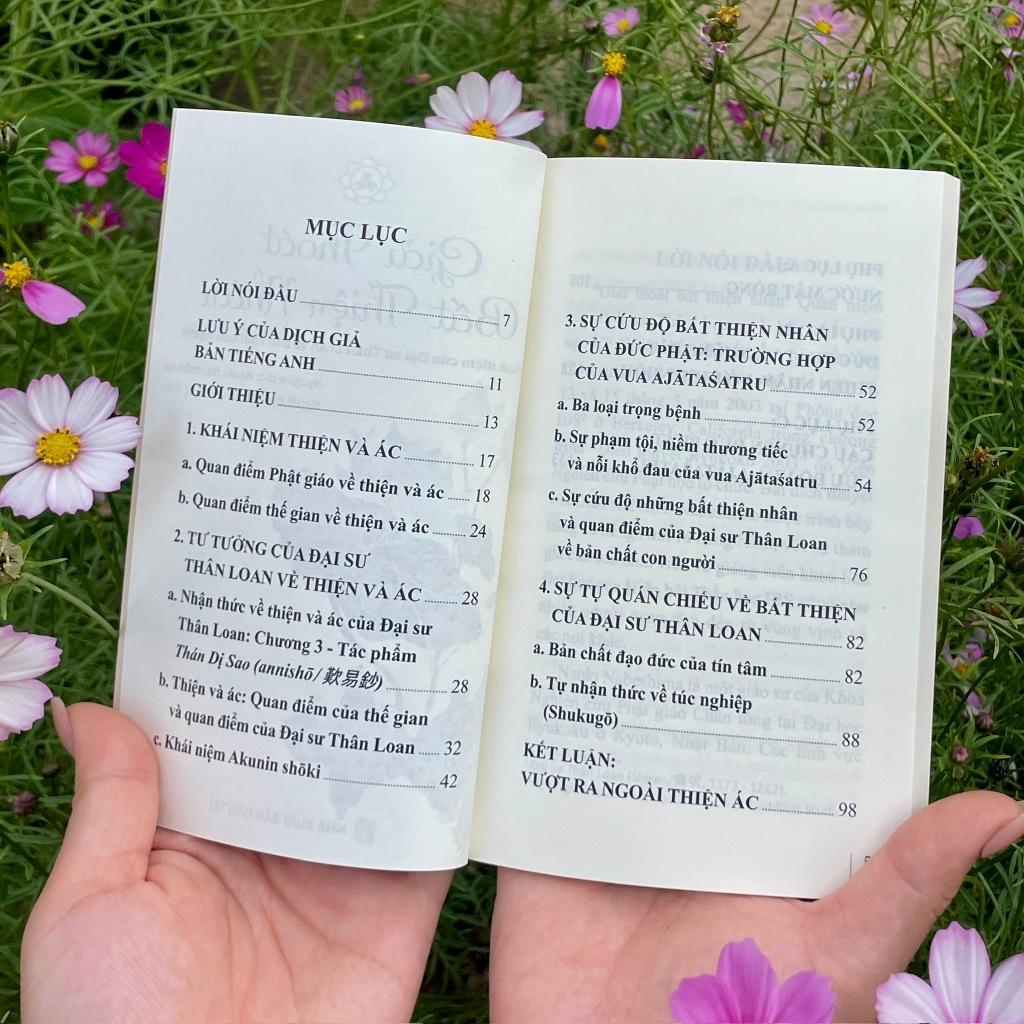 MỤC LỤC
LỜI NÓI ĐẦU 7
LƯU Ý CỦA DỊCH GIẢ
BẢN TIẾNG ANH 11
GIỚI THIỆU 13
1. KHÁI NIỆM THIỆN VÀ ÁC 17
a. Quan điểm Phật giáo về thiện và ác 18
b. Quan điểm thế gian về thiện và ác 24
2. TƯ TƯỞNG CỦA ĐẠI SƯ
THÂN LOAN VỀ THIỆN VÀ ÁC 28
a. Nhận thức về thiện và ác của Đại sư
Thân Loan: Chương 3 - Tác phẩm
Thán Dị Sao (annishō/ 歎易鈔) 28
b. Thiện và ác: Quan điểm của thế gian
và quan điểm của Đại sư Thân Loan 32
c. Khái niệm Akunin shōki 42
3. SỰ CỨU ĐỘ BẤT THIỆN NHÂN
CỦA ĐỨC PHẬT: TRƯỜNG HỢP
CỦA VUA AJĀTAŚATRU 52
a. Ba loại trọng bệnh 52
b. Sự phạm tội, niềm thương tiếc
và nỗi khổ đau của vua Ajātaśatru 54
c. Sự cứu độ những bất thiện nhân
và quan điểm của Đại sư Thân Loan
về bản chất con người 76
4. SỰ TỰ QUÁN CHIẾU VỀ BẤT THIỆN
CỦA ĐẠI SƯ THÂN LOAN 82
a. Bản chất đạo đức của tín tâm 82
b. Tự nhận thức về túc nghiệp
(Shukugō) 88
KẾT LUẬN:
VƯỢT RA NGOÀI THIỆN ÁC 98